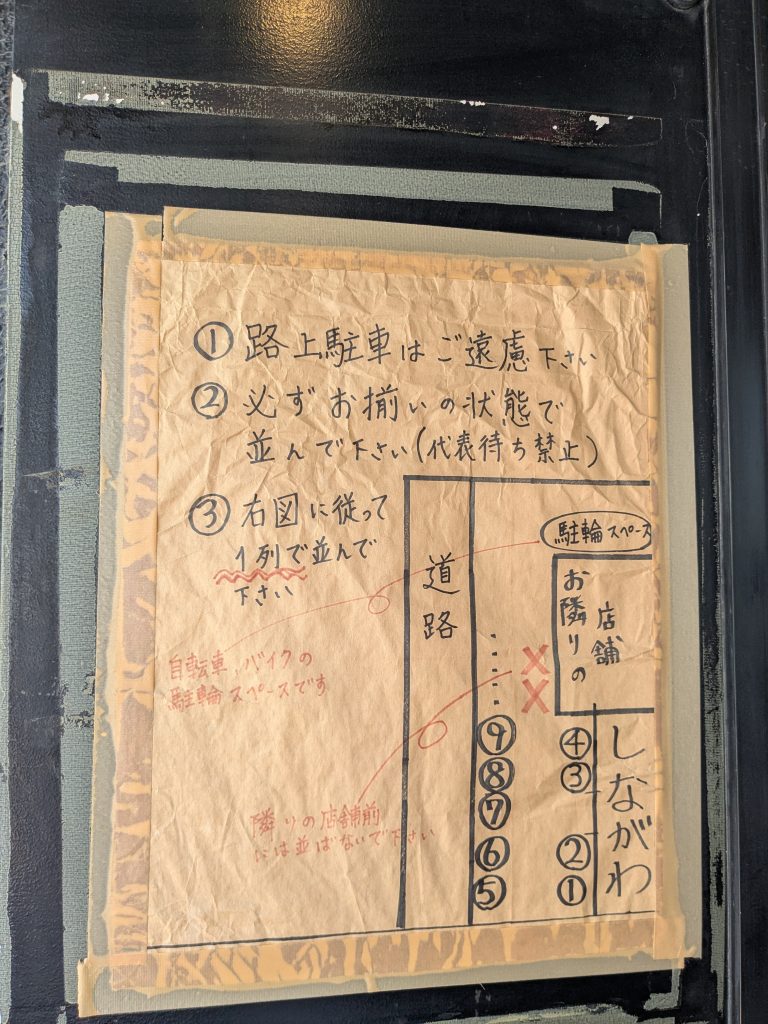 ① 路上駐車はご遠慮下さい
② 必ずお揃いの状態で
並んで下さい(代表待ち禁止)
③ 右図に従って
1列で並んで
下さい
自転車、バイクの
駐輪スペースです
隣りの店舗前
には並ばないで下さい
道路
駐輪スペース
お隣りの
店舗
××
⑨
⑧
⑦
⑥
⑤
④
③
②
①
しながわ